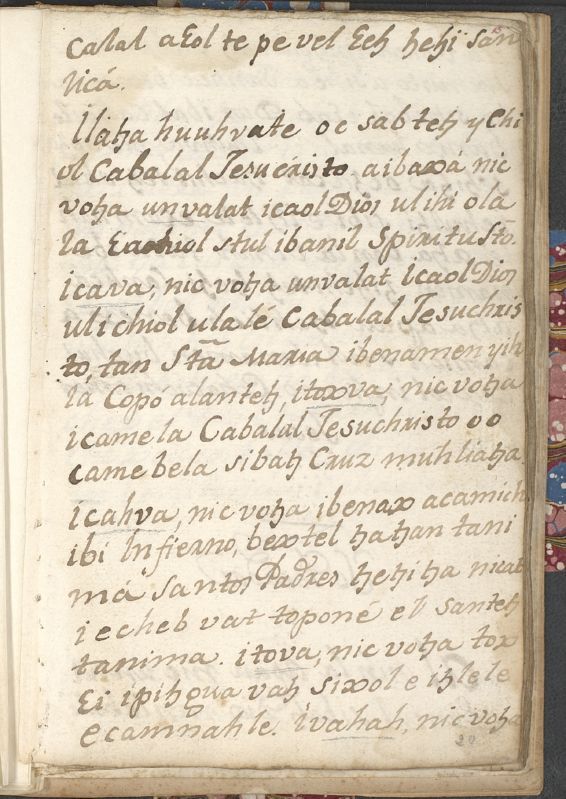 Calal aEolte pe vel Eeh hehi san
ticá.
llaha huuhvate oc sabteh y Chi
ol Cabalal Jesucristo aibaxá nic
voha unvalat icaol Dios ulihi ola
la Eachiol stul ibanil Spiritu Sto.
icava, nic voha unvalat icaol Dios
uli chiol ulalé Cabalal Jesuchris
to, tan Sta Maria ibenamen yih
la Copó alanteh, itoxva, nic voha
icame la Cabalal Jesuchristo oo
came bela sibah Cruz muhliaha
icahva, nic voha ibenax acamich
ibi Infierno, bextel hahan tani
má Santos Padres hehi ha nicat
iecheb vat toponé el santeh
tanima. itova, nic voha tox
Ei ipihgua vah sixol e ihlele
ecamnahle. ivahah, nic voha
20